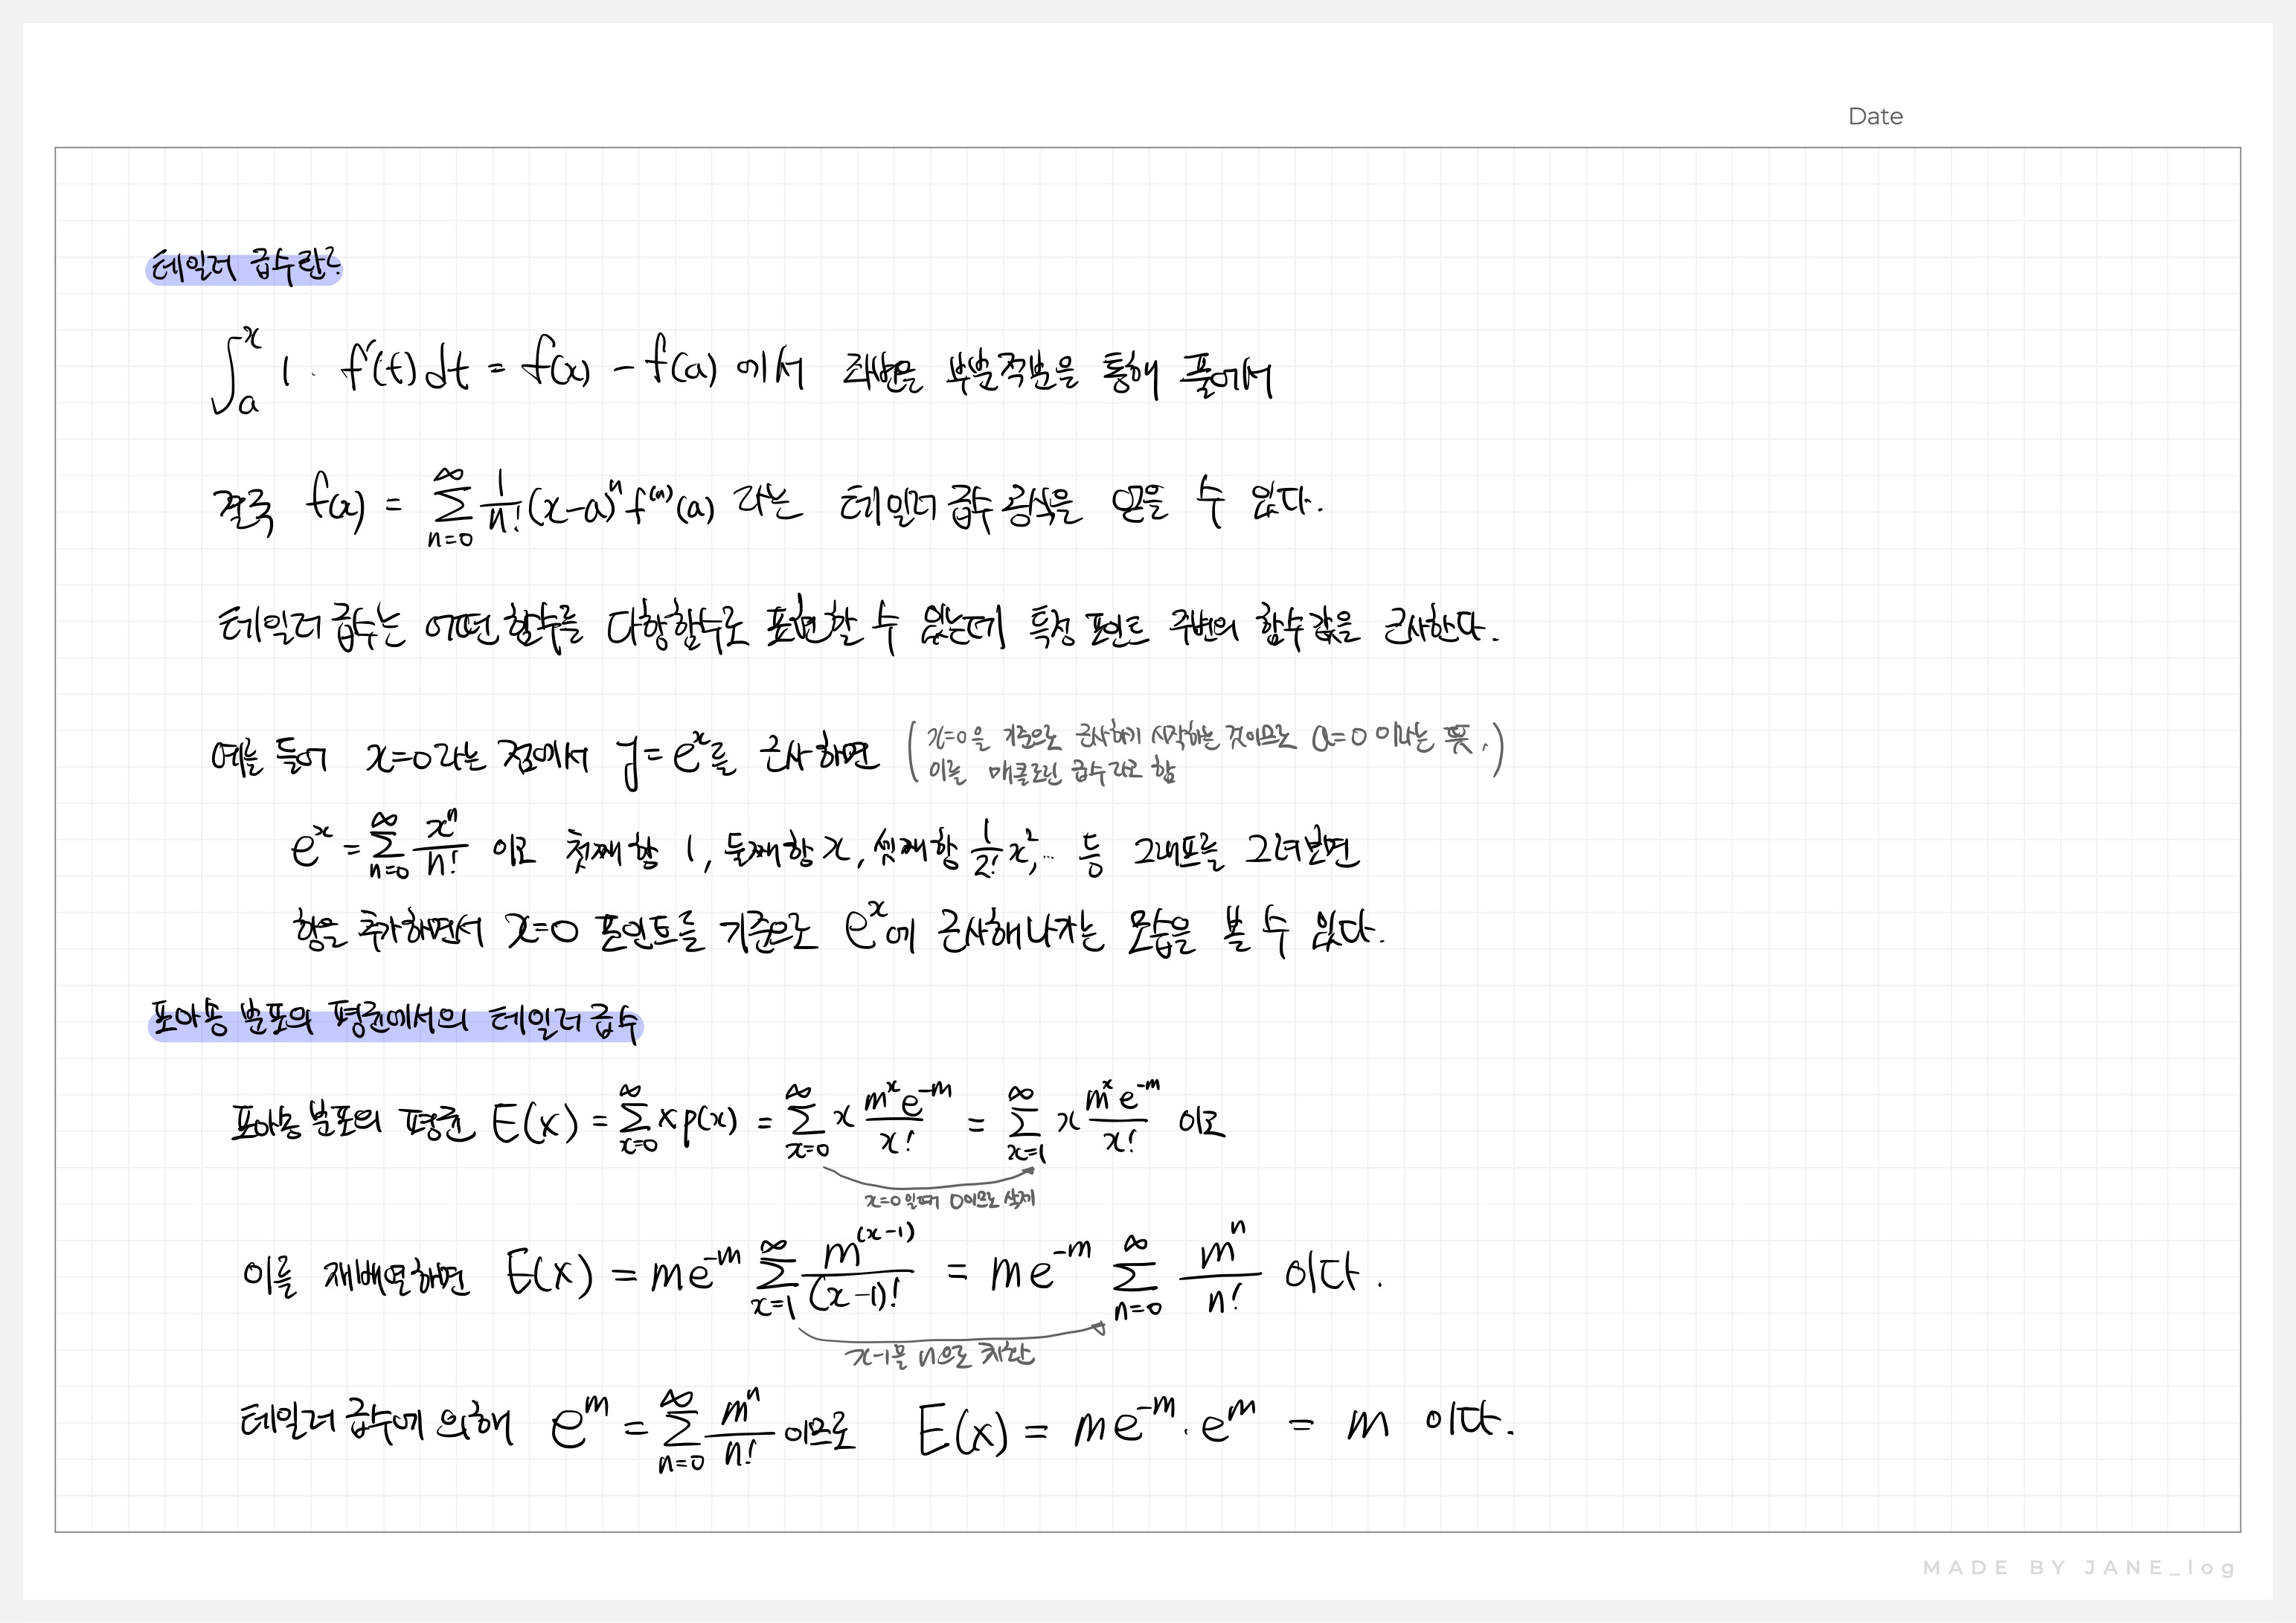 Date
테일러 급수란?
∫ₐˣ 1 · f'(t) dt = f(x) - f(a) 에서 좌변을 부분적분을 통해 풀어서
결국 f(x) = ∑_{n=0}^{∞} 1/n! (x-a)ⁿ f⁽ⁿ⁾(a) 라는 테일러 급수 공식을 얻을 수 있다.
테일러 급수는 어떤 함수를 다항함수로 표현할 수 있는데 특정 포인트 주변의 함수값을 근사한다.
예를 들어 x=0라는 점에서 y=eˣ를 근사하면 (x=0을 기준으로 근사하기 시작하는 것이므로 a=0 이라는 뜻.
이를 매클로린 급수라고 함)
eˣ = ∑_{n=0}^{∞} xⁿ/n! 이고 첫째항 1, 둘째항 x, 셋째항 1/2! x², ... 등 그래프를 그려보면
항을 추가하면서 x=0 포인트를 기준으로 eˣ에 근사해나가는 모습을 볼 수 있다.
포아송 분포의 평균에서의 테일러 급수
포아송 분포의 평균 E(x) = ∑_{x=0}^{∞} x p(x) = ∑_{x=0}^{∞} x mˣe⁻ᵐ/x! = ∑_{x=1}^{∞} x mˣe⁻ᵐ/x! 이고
x=0일때 0이므로 삭제
이를 재배열하면 E(x) = me⁻ᵐ ∑_{x=1}^{∞} m^{(x-1)}/(x-1)! = me⁻ᵐ ∑_{n=0}^{∞} mⁿ/n! 이다.
x-1을 n으로 치환
테일러 급수에 의해 eᵐ = ∑_{n=0}^{∞} mⁿ/n! 이므로 E(x) = me⁻ᵐ · eᵐ = m 이다.
MADE BY JANE_log